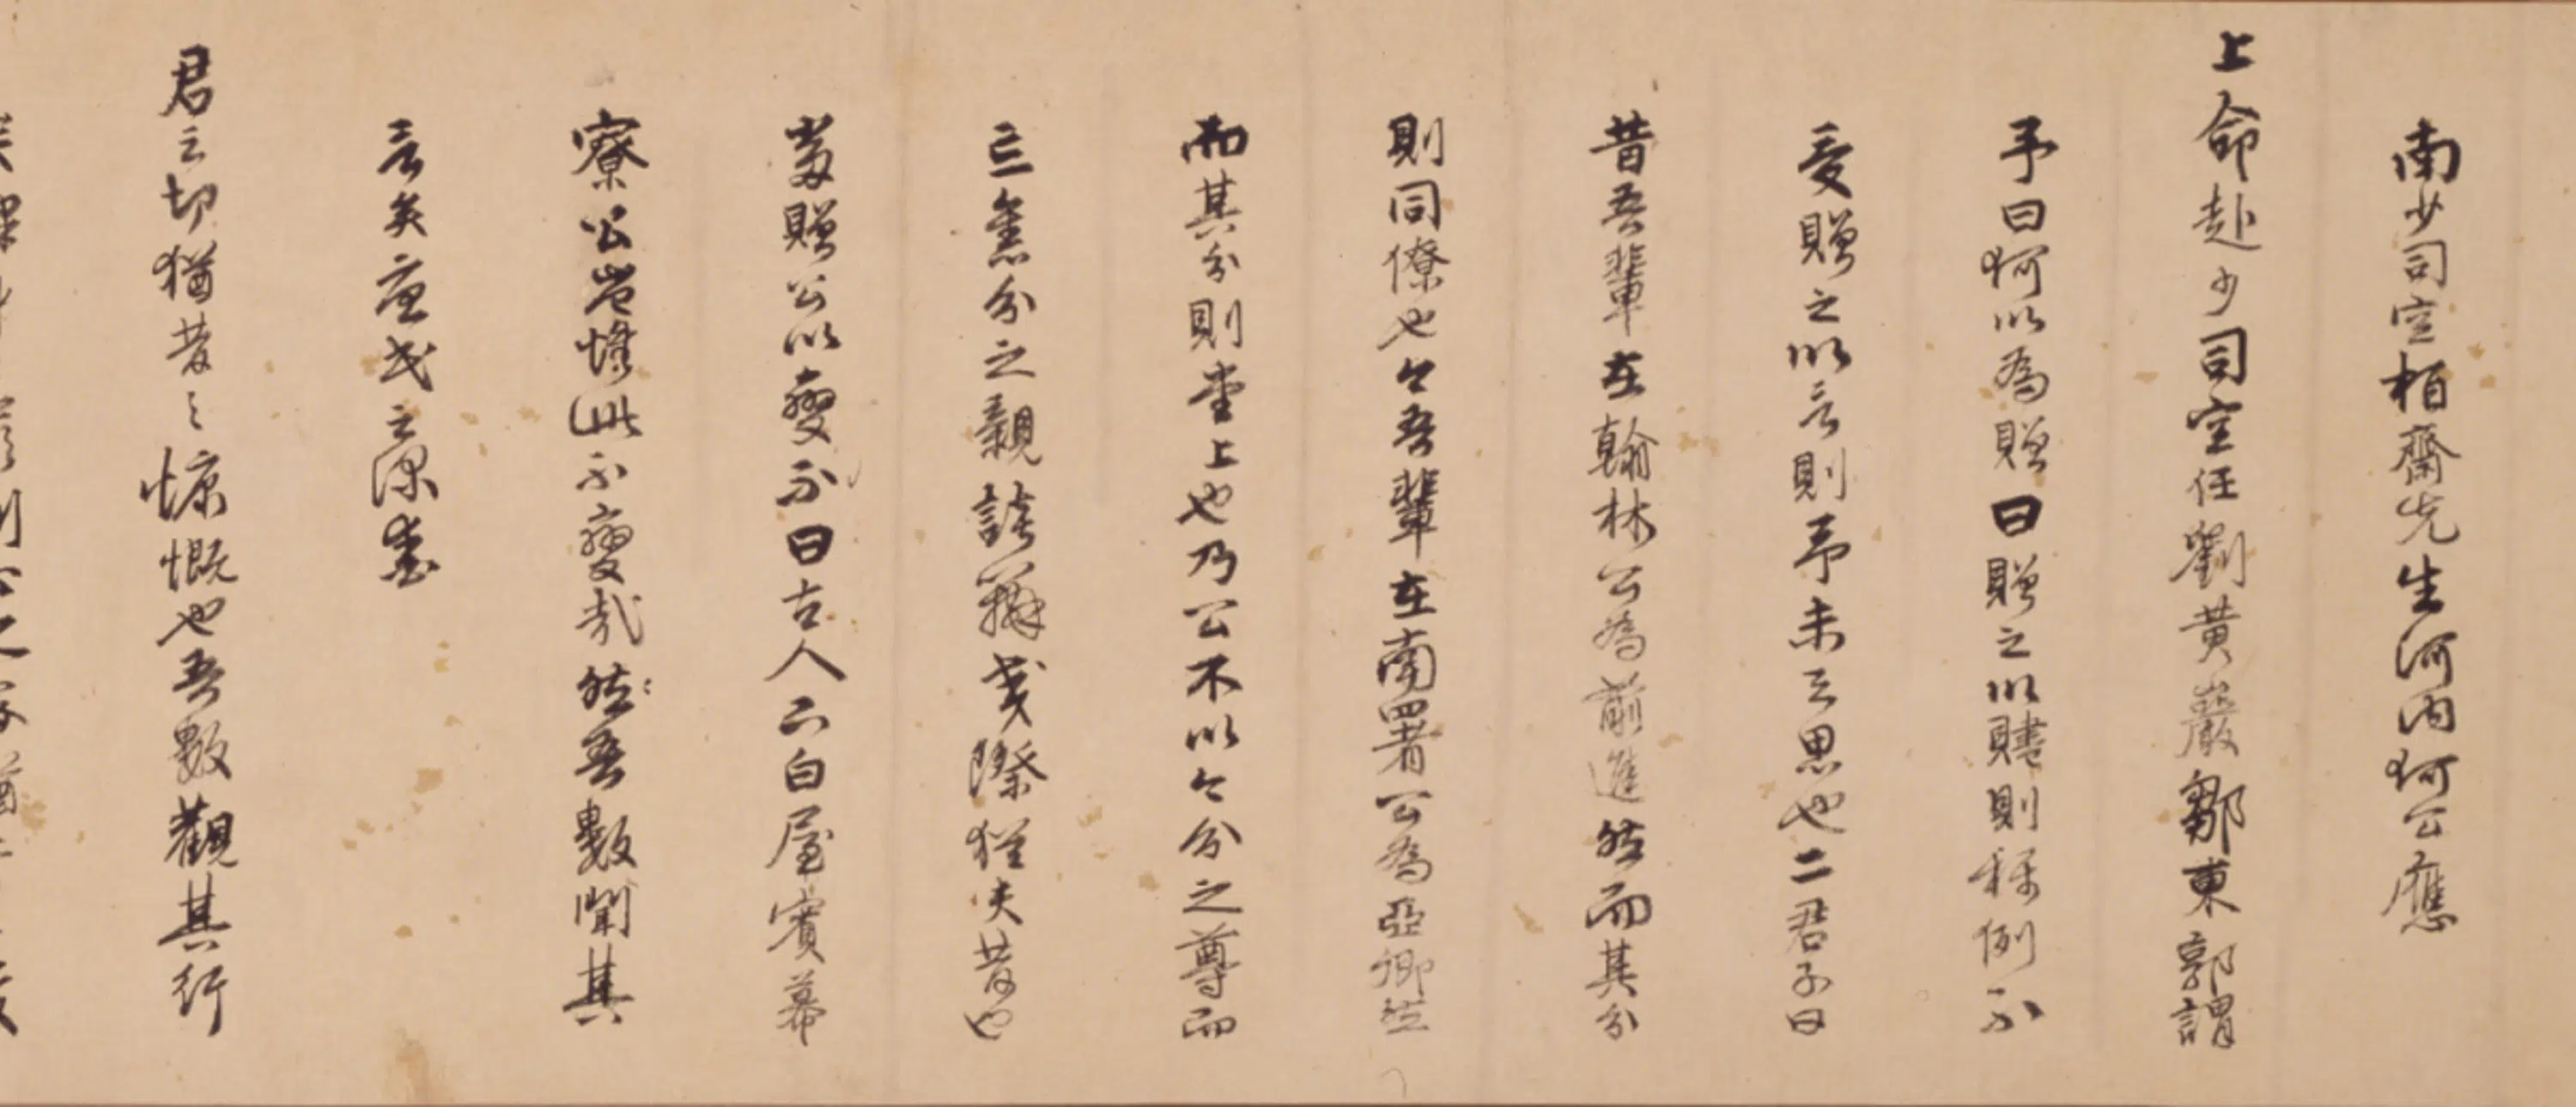 南少司空柏齋先生河內何公應
上命赴少司空任劉黃巖鄒東郭謂
予曰何以為贈曰贈之以賮則稱例不
受贈之以言則予未之思也二君子曰
昔吾輩在翰林公為前進然而其分
則同僚也今吾輩在南署公為亞卿然
而其分則堂上也乃公不以今分之尊而
忘舊分之親談辯交際猶夫昔也
盍贈公以變不曰古人下白屋賓幕
寮公豈慊此不變哉然吾數聞其
言矣應求之深
君之切猶昔之慷慨也吾數觀其行